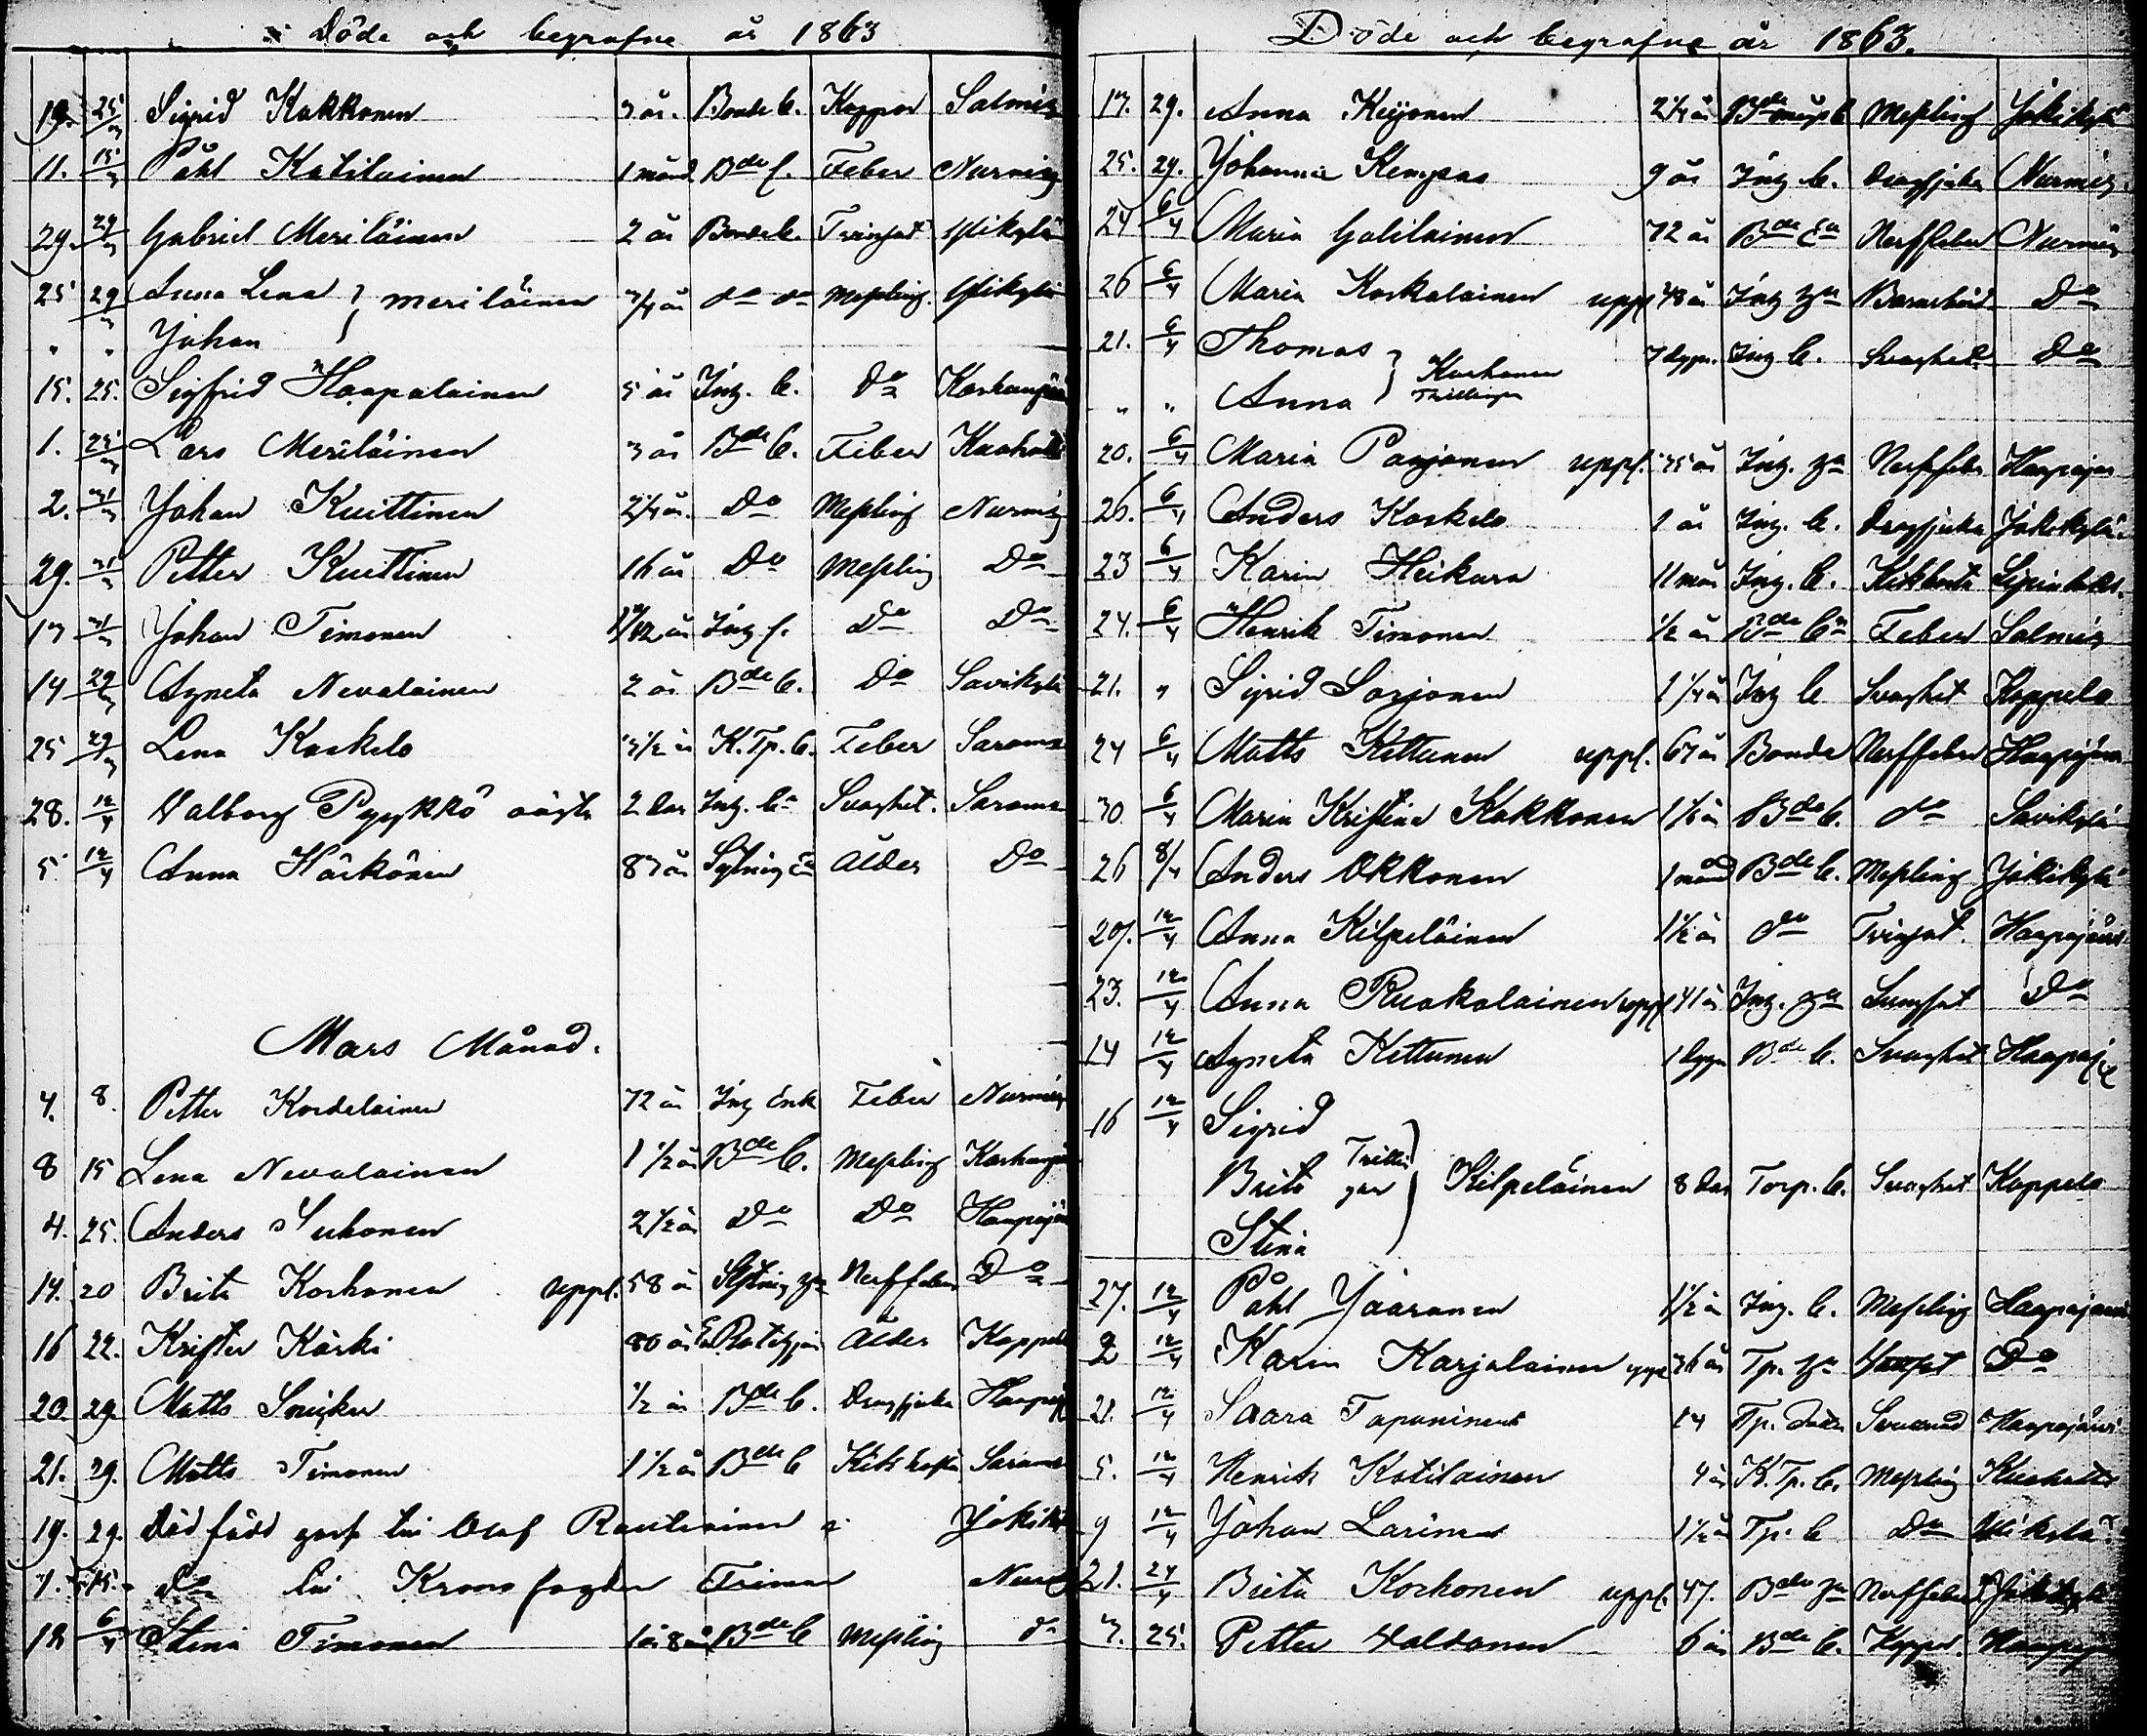 Döde och begrafne år 1863
19. 25/3 Sigrid Kakkonen 3 år. Bonde b. Koppor Salmis
11. 15/3 Påhl Katilainen 1 månd Bde f. Feber Nurmis
29. 29/3 Gabriel Meriläinen 2 år Bonde b. Tvinsot Ylikylä
25 29/3 Anna Lena } Meriläinen 3/4 år do do Meßling Ylikylä
" " Johan
15. 25. Sigfrid Haapalainen 5 år Inh. b. Do
1. 25/3 Lars Meriläinen 3 år Bde b. Feber
2. 31/3 Johan Kuittinen 2 1/4 år. Do Meßling Nurmis
29. 31/3 Petter Kuittinen 16 år Do Meßling Do
13 31/3 Johan Timonen Inh f. Do Do
14 29/3 Agneta Nevalainen 2 år Bde b. Do Savikylä
25 29/3 Lena Koskelo 3 1/2 år K. Tp. b. Feber Sarama
28. 12/4 Valborg Pyykkö oägta 2 dar Inh. b. Svaghet. Sarama
5 12/4 Anna Härkönen 83 år Sytning Ålder Do
Mars Månad.
4. 8. Petter Kordelainen 72 år Inh Enk Feber Nurmis
8 15 Lena Nevalainen 1 1/2 år Bde b. Meßling
4. 25. Anders Suhonen 2 1/2 år Do Do Haapajär
14. 20 Brita Korhonen uppl. 58 år Nerffeber Do
16 22. Krister Kärki 80 år Ålder Koppelo
20. 29. Matts Snicker 1/2 år Bde b. Dragsjuka Haapaj
21. 29. Matts Timonen 1 1/2 år Bde b Kikhosta Sarama
19. 29. Död född till Olof Rautiainen i Jokik
7. 15. Do till Kronofogden Nurmis
12 6/4 Stina Timonen 1 år 8 Bde b Meßling do
Döde och begrafne år 1863.
17. 29. Anna Keijonen 2 1/4 år Meßling Jokikylä
25. 29. Johanna Kempas 9 år Inh b. Dragsjuka Nurmis.
24 6/4 Maria Galilainen 72 år Bde Ea Nerffeber Nurmis
26 6/4 Maria Koskalainen uppl 48 år Inh Barnsbörd Do
21. 6/4 Thomas } Korhonen 7 dygn. Inh b. Svaghet Do
" " Anna Tvillingar
20. 6/4 Maria Parjanen uppl. 35 år Inh. Nerffeber Haapajär
26. 6/4 Anders Koskelo 1 år Inh. b. Dragsjuka Jokikylä
23 6/4 Karin Heikura 11 mån Inh. b. Kikhosta Lipinlaks.
24. 6/4 Henrik Timonen 1/2 år Bde b Feber Salmis
21. " Sigrid Sorjonen 1 1/4 år Inh b Svaghet Koppelo
24 6/4 Matts Kettunen uppl. 67 år Bonde Nerffeber Haapajärvi
30. 6/4 Maria Kristina Kakkonen Bde b. do Savikylä
26 8/4 Anders Okkonen 1 månd Bde b. Meßling Jokikylä
20. 12/4 Anna Kilpeläinen 1 1/2 år do Tvinsot. Haapajärvi
23. 12/4 Anna Ruokolainen uppl 41 år Inh. Lungsot Do
14 12/4 Agneta Kettunen 1 dygn Bde b. Svaghet Haapaj
16 12/4 Sigrid
Brita Trillingar } Kilpeläinen 8 dar Torp. b. Svaghet Koppelo
Stina
27. 12/4 Påhl Jaaranen 1 1/2 år Inh. b. Meßling Haapajärvi
2 12/4 Karin Karjalainen uppl 36 år Tp. Do
21. 12/4 Saara Tapaninen 14 Tp. Haapajärvi
5. 12/4 Henrik Kotilainen 4 år K. Tp. b. Meßling
9 12/4 Johan Larinen 1 1/2 år Tp. b Do Ylikylä
21. 24/4 Brita Korhonen uppl. 47. Bde Nerffeber Jokikylä
3. 25. Petter Valdanen 6 år Bde b. Koppor. Haapaj